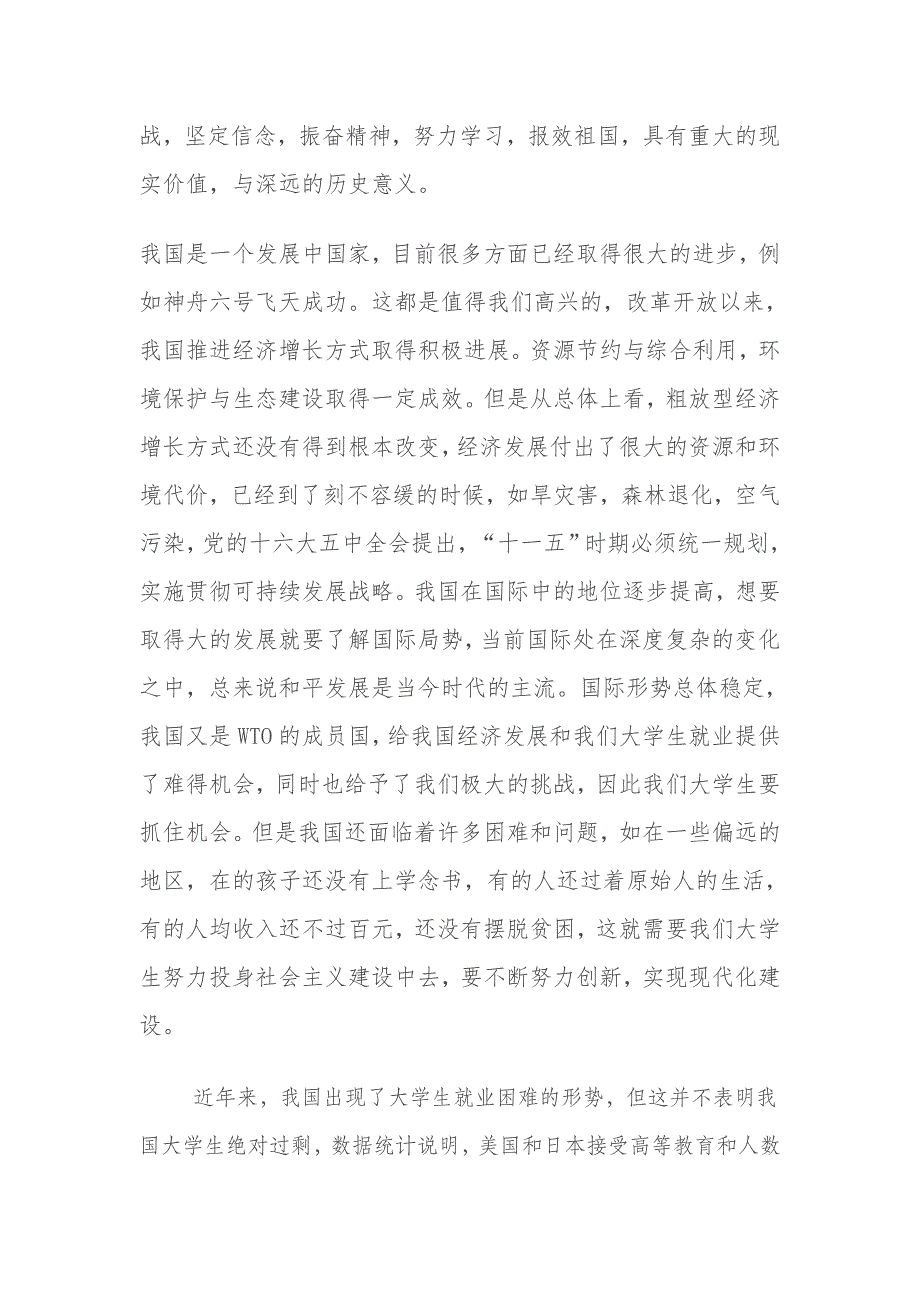 战，坚定信念，振奋精神，努力学习，报效祖国，具有重大的现
实价值，与深远的历史意义。
我国是一个发展中国家，目前很多方面已经取得很大的进步，例
如神舟六号飞天成功。这都是值得我们高兴的，改革开放以来，
我国推进经济增长方式取得积极进展。资源节约与综合利用，环
境保护与生态建设取得一定成效。但是从总体上看，粗放型经济
增长方式还没有得到根本改变，经济发展付出了很大的资源和环
境代价，已经到了刻不容缓的时候，如旱灾害，森林退化，空气
污染，党的十六大五中全会提出，“十一五”时期必须统一规划，
实施贯彻可持续发展战略。我国在国际中的地位逐步提高，想要
取得大的发展就要了解国际局势，当前国际处在深度复杂的变化
之中，总来说和平发展是当今时代的主流。国际形势总体稳定，
我国又是 WTO 的成员国，给我国经济发展和我们大学生就业提供
了难得机会，同时也给予了我们极大的挑战，因此我们大学生要
抓住机会。但是我国还面临着许多困难和问题，如在一些偏远的
地区，在的孩子还没有上学念书，有的人还过着原始人的生活，
有的人均收入还不过百元，还没有摆脱贫困，这就需要我们大学
生努力投身社会主义建设中去，要不断努力创新，实现现代化建
设。
近年来，我国出现了大学生就业困难的形势，但这并不表明我
国大学生绝对过剩，数据统计说明，美国和日本接受高等教育和人数